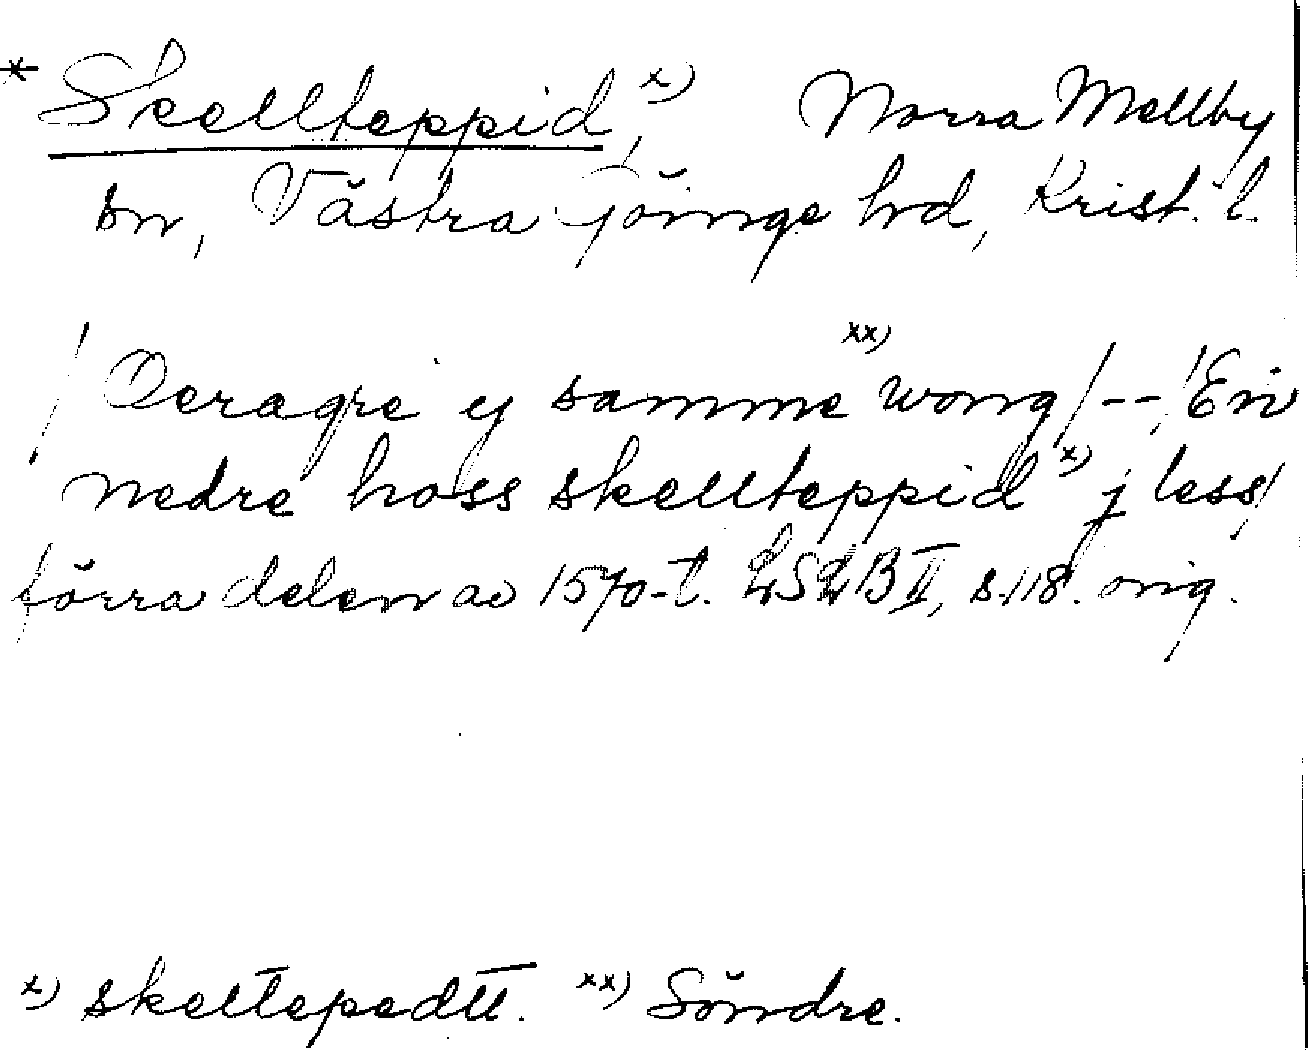 * Skellteppid,x) Norra Mellby
sn, Västra Göinge hd, Krist. l.
/Oeragre ij samme xx) wong/--/Ein
nedre hoss skellteppid x) j less/
förra delen av 1570-t. LSLB II, s.118. orig.
x) skeltepedtt. xx) Söndre.